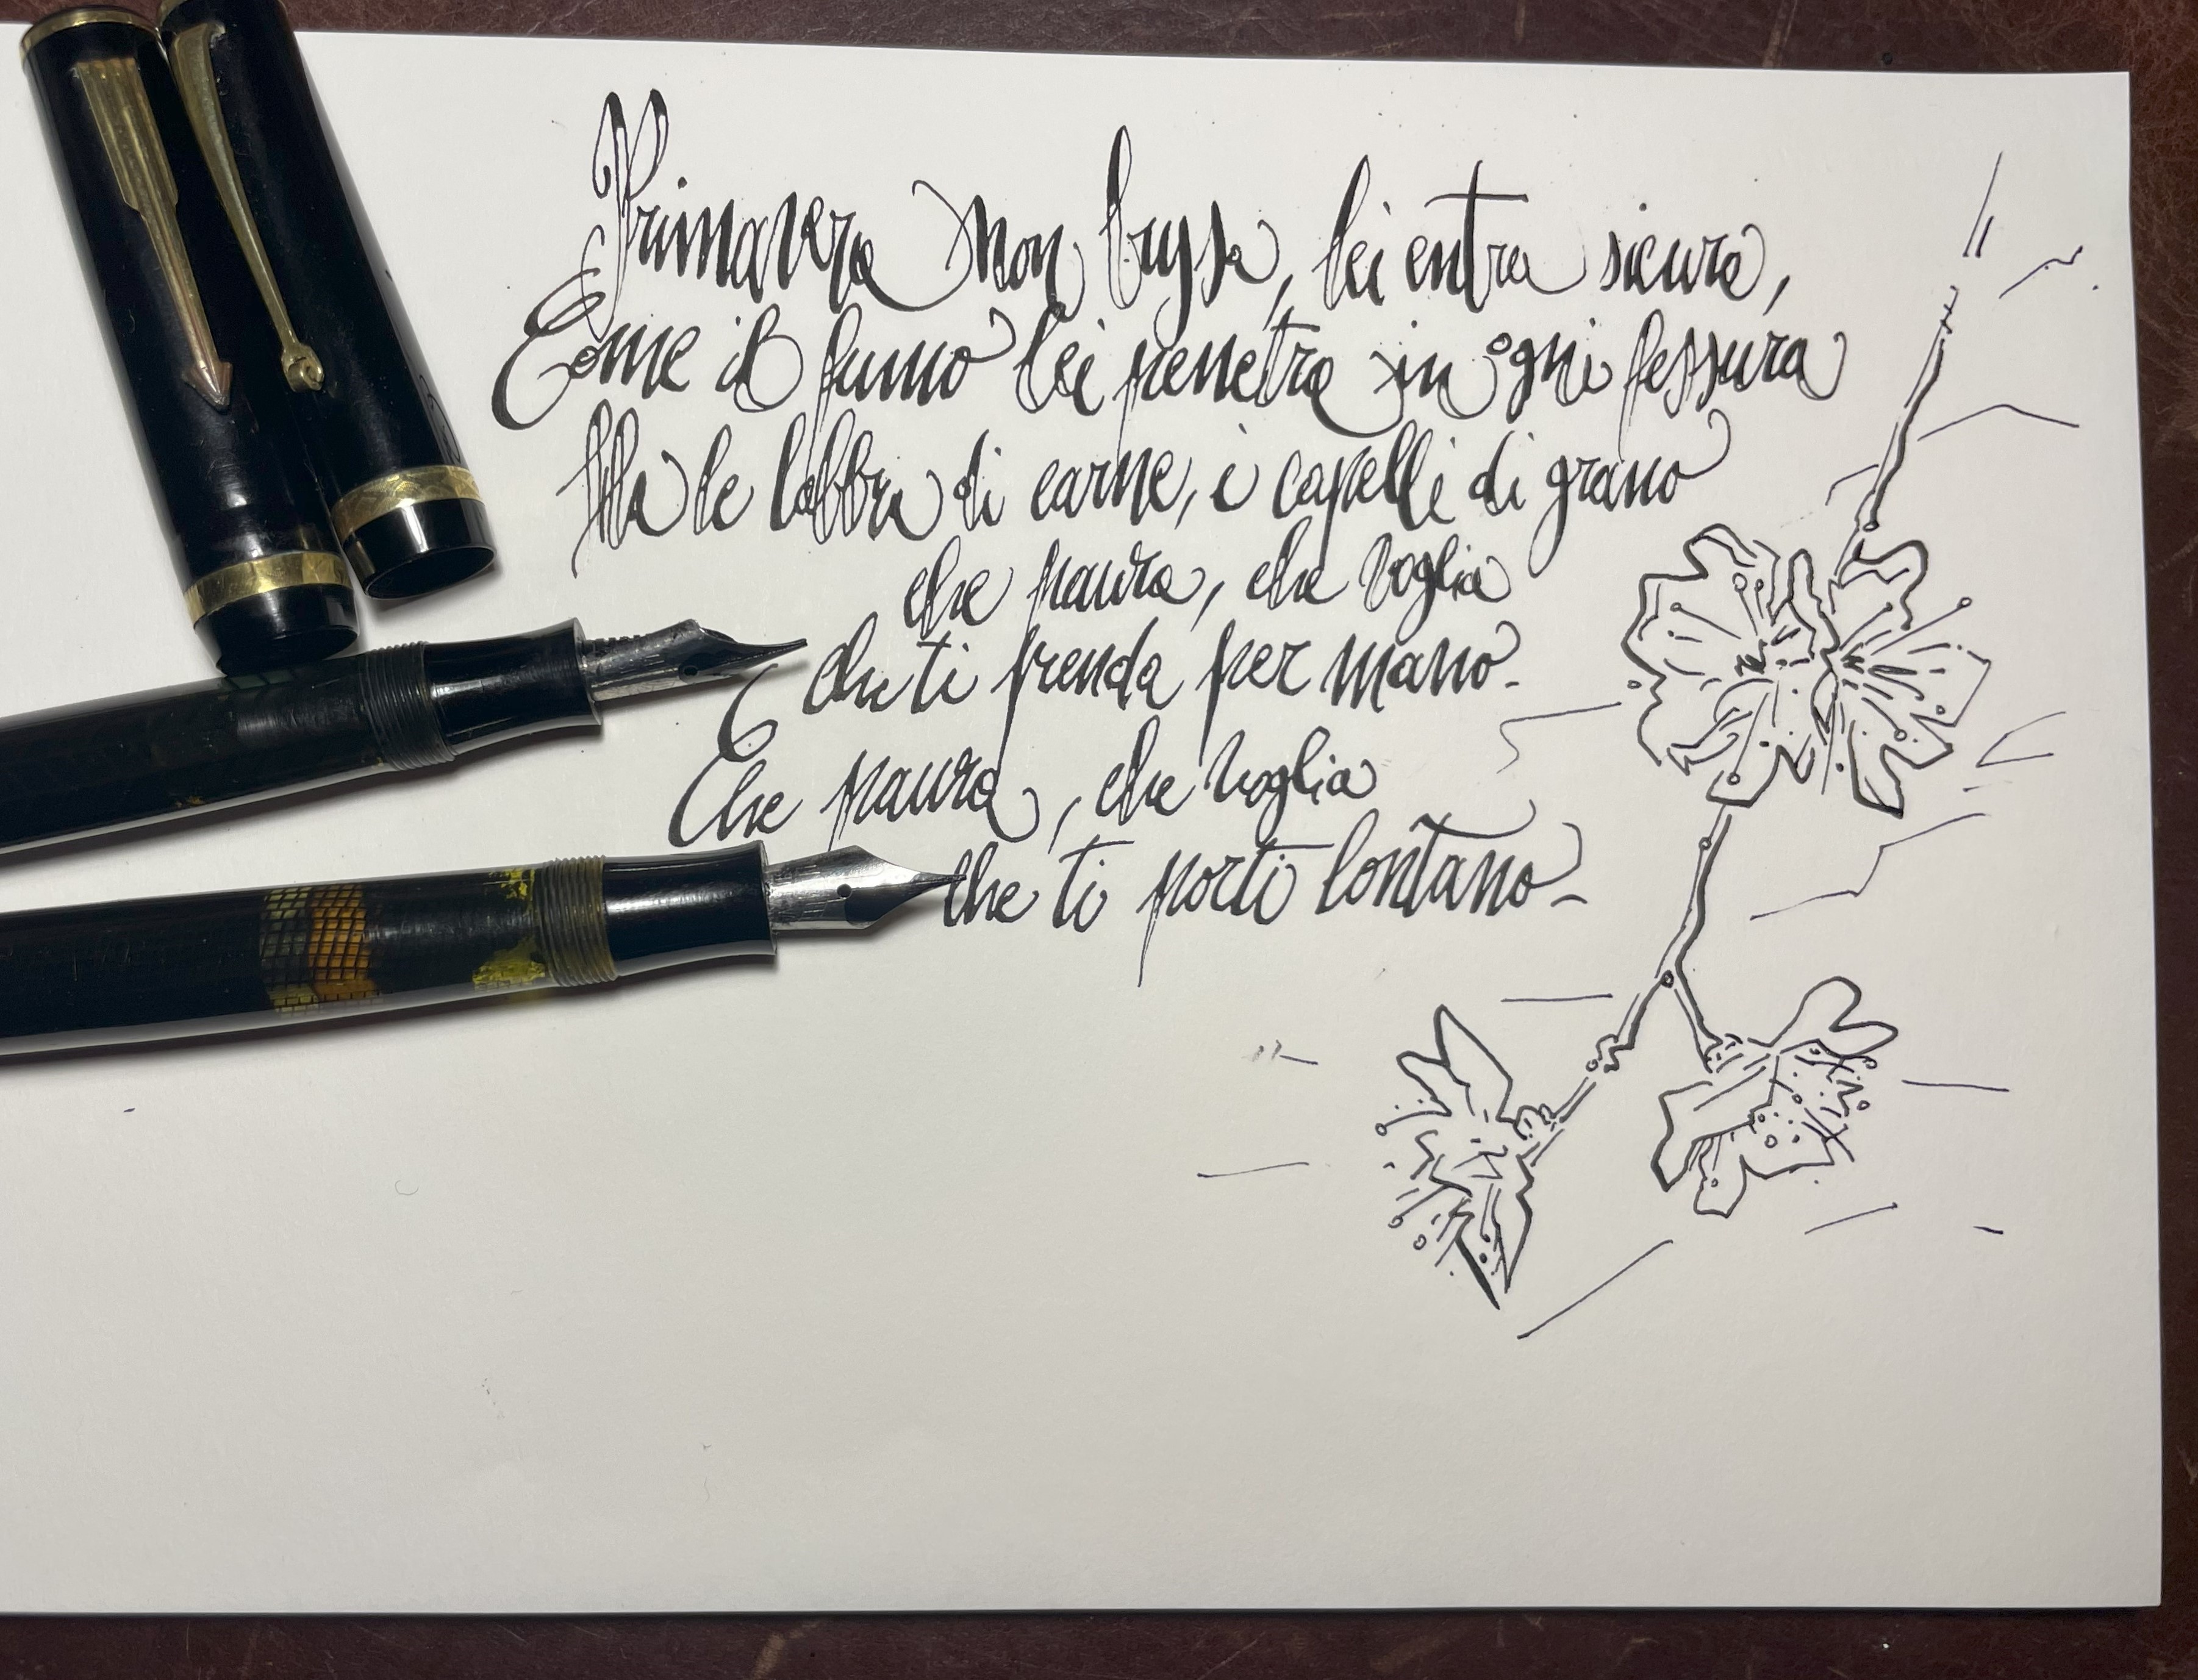 Primavera non bussa, lei entra sicura,
Come il fumo lei penetra in ogni fessura
Ha le labbra di carne, i capelli di grano
che paura, che voglia
che ti prenda per mano-
Che paura, che voglia
che ti porti lontano-